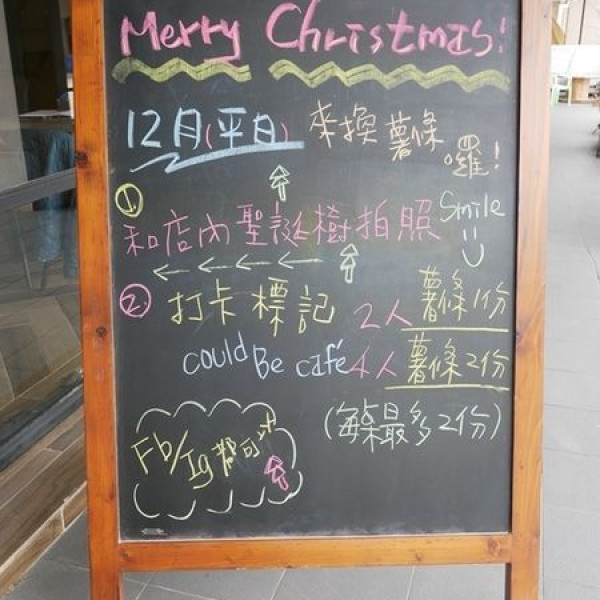 Merry Christmas!
12月(平日) 來換薯條囉!
1.
和店內聖誕樹拍照 Smile
2. 打卡標記 2人薯條1份
could Be café 4人薯條2份
(每桌最多2份)
Fb/Ig都可